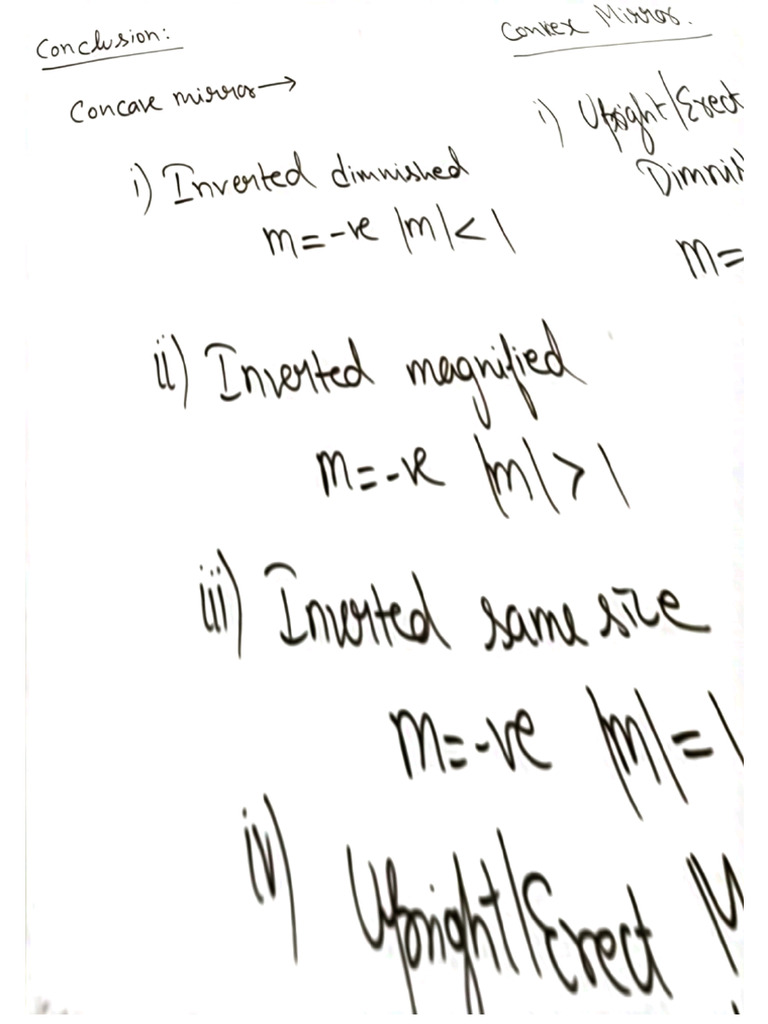 Conclusion:
Concave mirror →
i) Inverted dimnished
m=-ve |m|<1
ii) Inverted magnified
m=-ve |m|>1
iii) Inverted same size
m=-ve |m|=1
iv) Upright/Erect M
Convex Mirror.
i) Upright/Erect
Dimni
m=